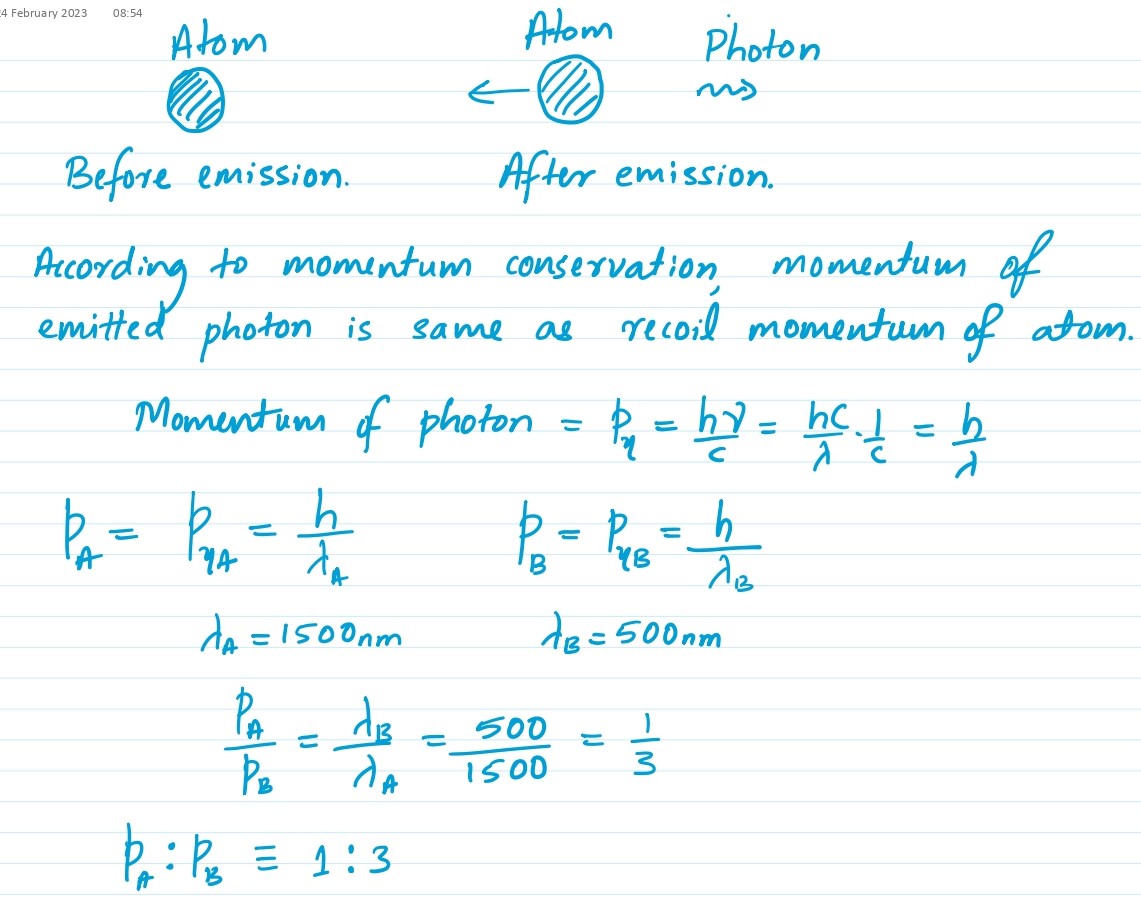 4 February 2023 08:54
Atom Atom Photon
Before emission. After emission.
According to momentum conservation, momentum of
emitted photon is same as recoil momentum of atom.
Momentum of photon = p_η = hν/c = hc/λ · 1/c = h/λ
p_A = p_ηA = h/λ_A p_B = p_ηB = h/λ_B
λ_A = 1500nm λ_B = 500nm
p_A/p_B = λ_B/λ_A = 500/1500 = 1/3
p_A : p_B ≡ 1 : 3